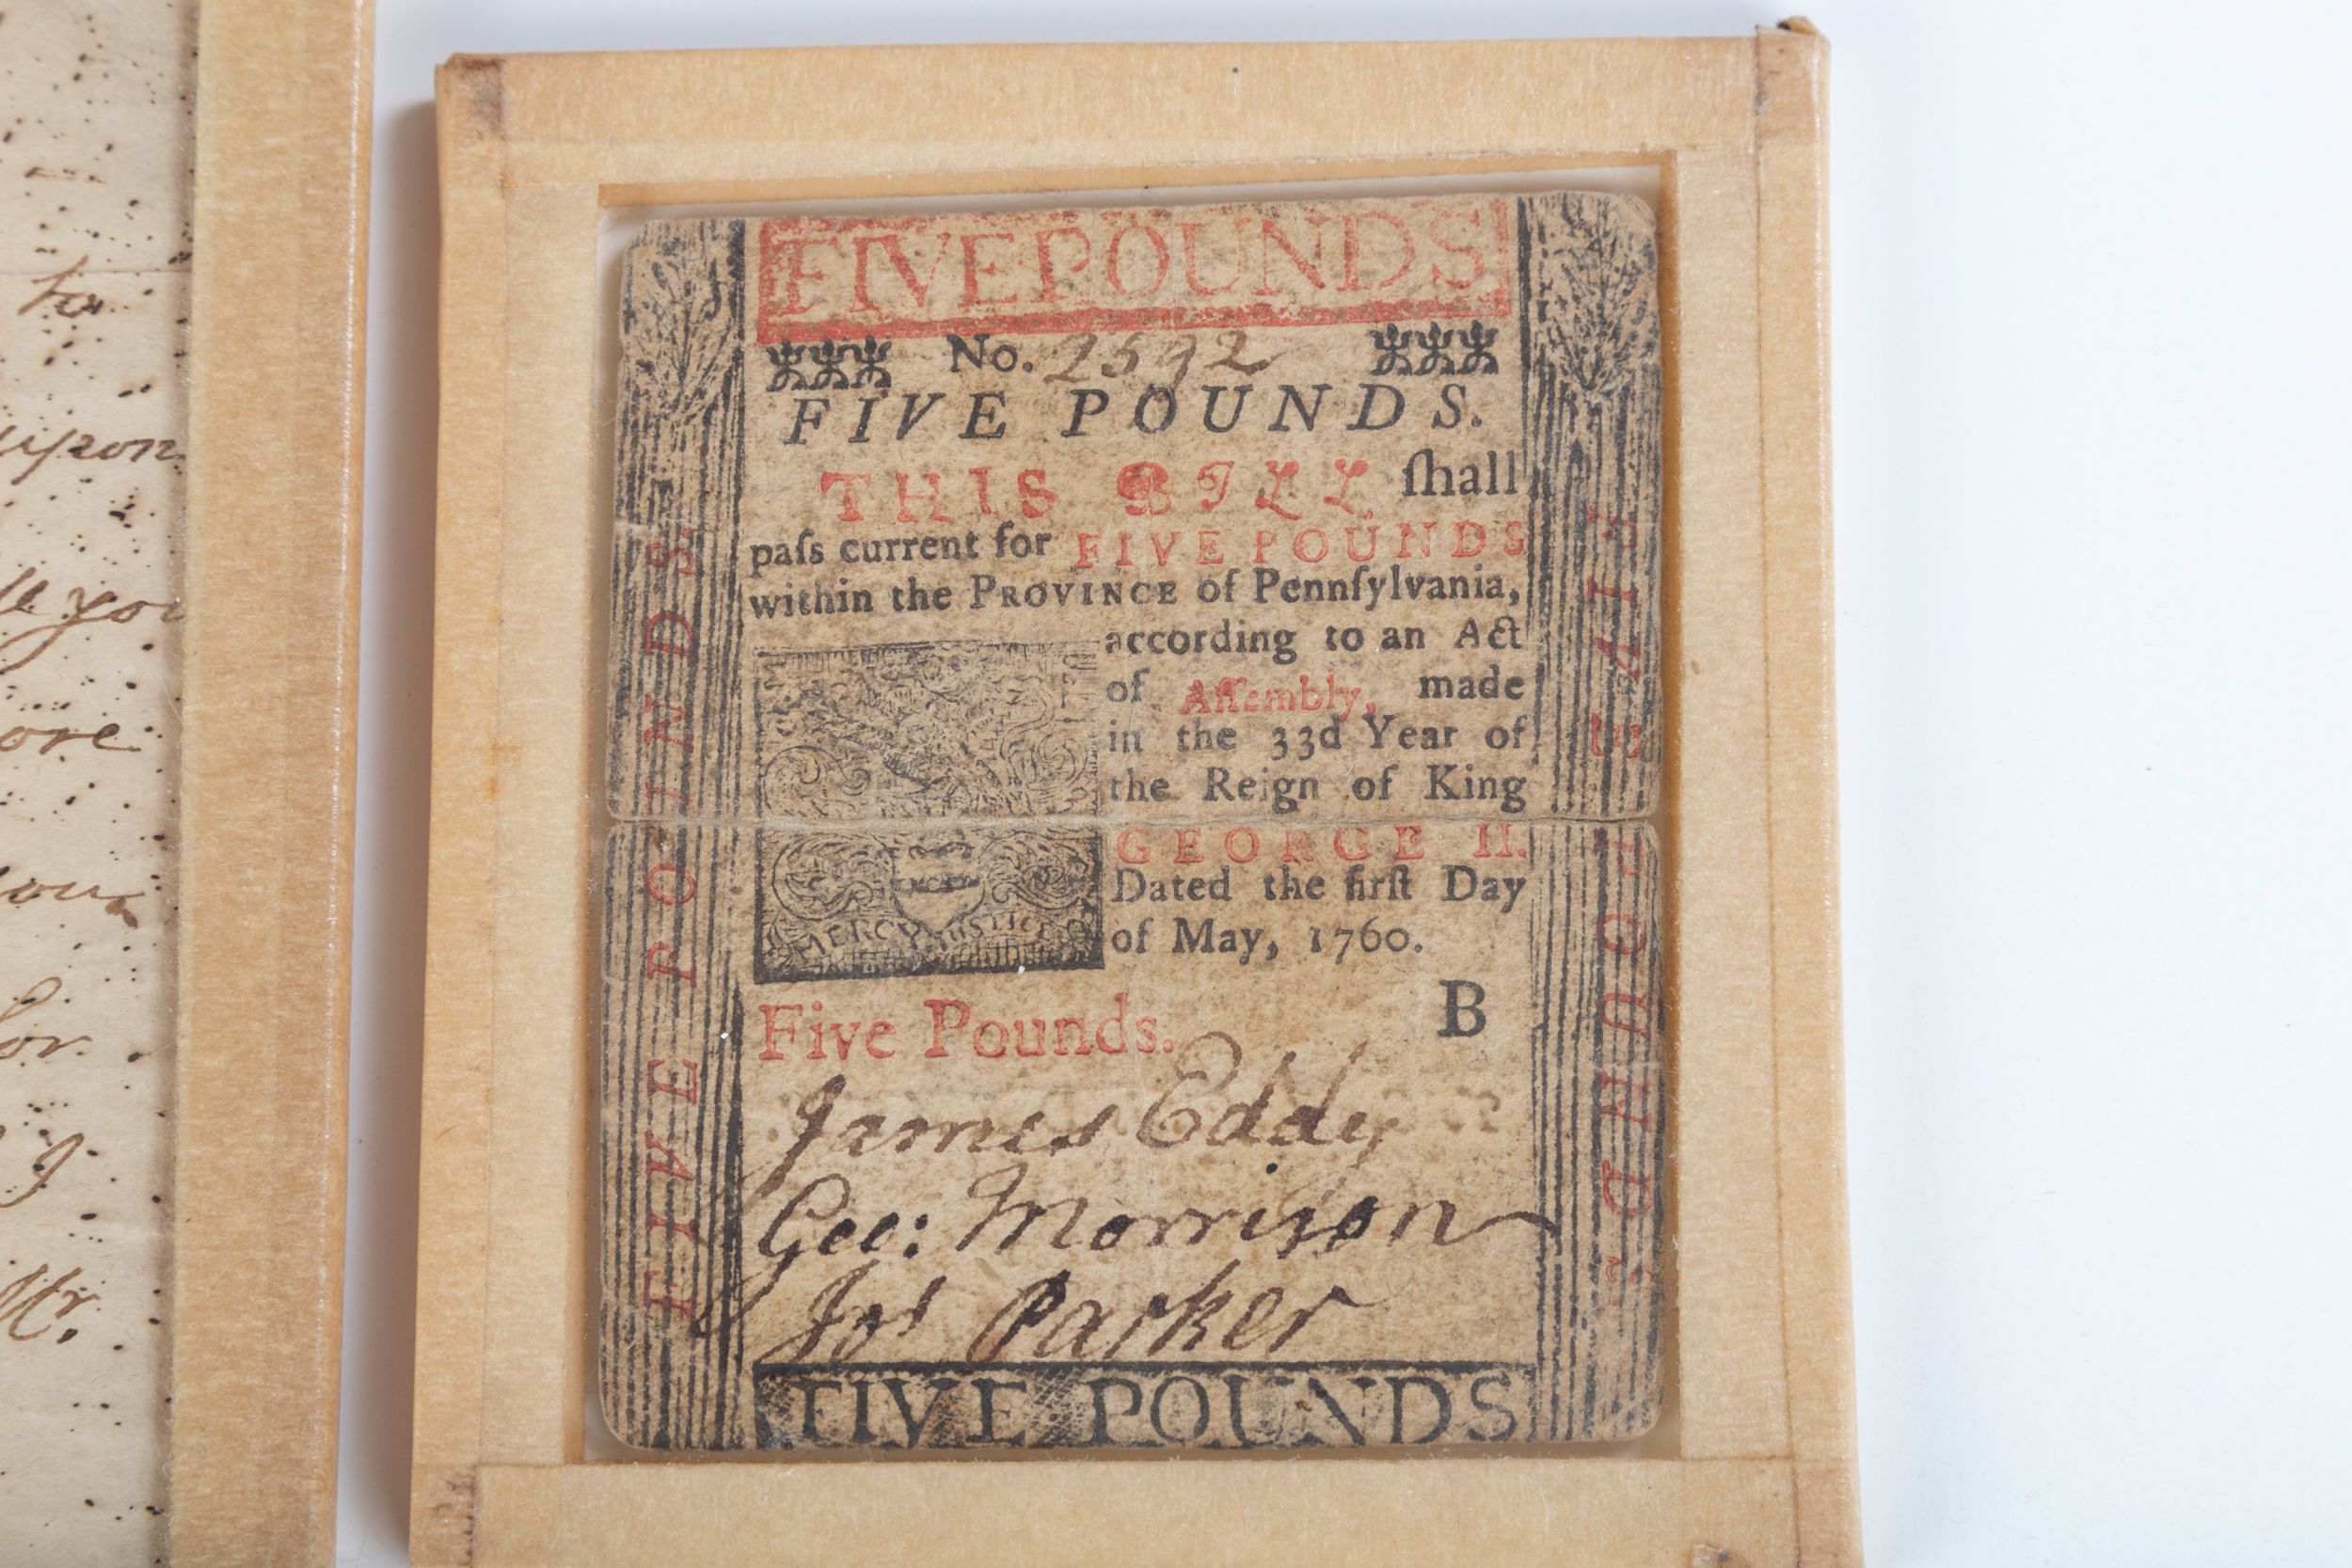 to
upon
ll you
ore
you
for
I
Mr.
FIVE POUNDS
No. 2592
FIVE POUNDS.
THIS BILL ſhall
paſs current for FIVE POUNDS
within the PROVINCE of Pennſylvania,
according to an Act
of Aſſembly, made
in the 33d Year of
the Reign of King
GEORGE II.
Dated the firſt Day
of May, 1760.
MERCY JUSTICE
Five Pounds. B
James Eddy
Geo: Morrison
Jos Parker
FIVE POUNDS
FIVE POUNDS.
FIVE POUNDS.